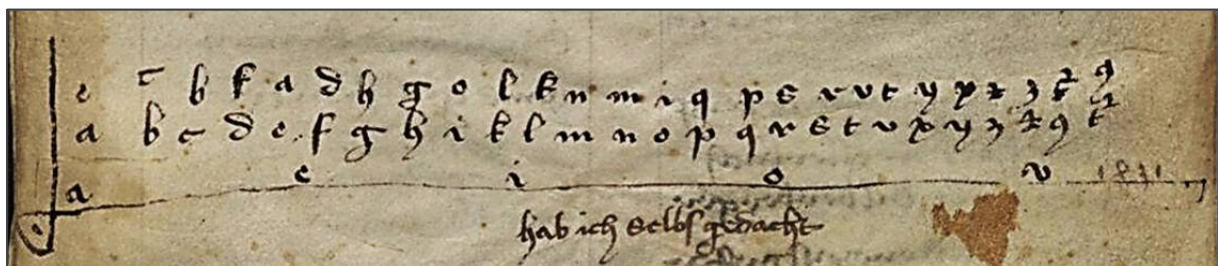 e c b f a d h g o l k n m i q p s r v t y x z
a b c d e f g h i k l m n o p q r s t v x y z
a e i o v
hab ich selbs gedacht